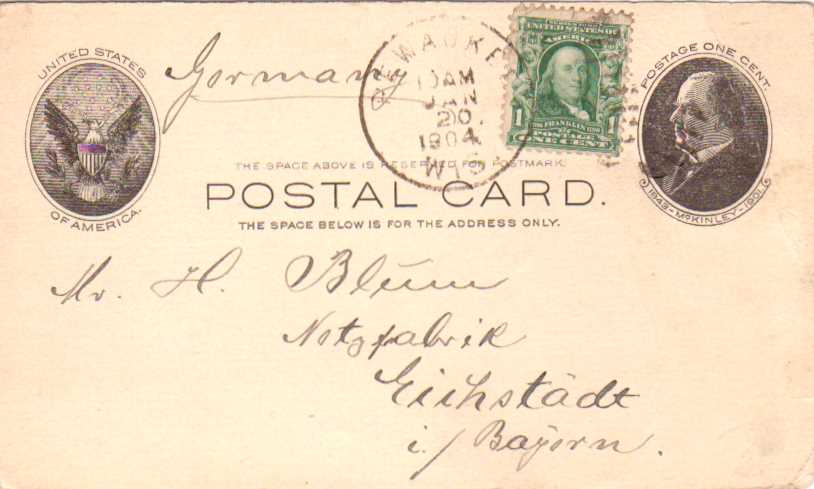 UNITED STATES
OF AMERICA.
Germany
PEWAUKEE
10 AM
JAN
20
1904
WIS.
UNITED STATES OF
AMERICA
1
1
FRANKLIN
POSTAGE
ONE CENT
POSTAGE ONE CENT.
1843-McKINLEY-1901
THE SPACE ABOVE IS RESERVED FOR POSTMARK.
POSTAL CARD.
THE SPACE BELOW IS FOR THE ADDRESS ONLY.
Mr. H. Blum
Netzfabrik
Eichstädt
i./ Bayern.